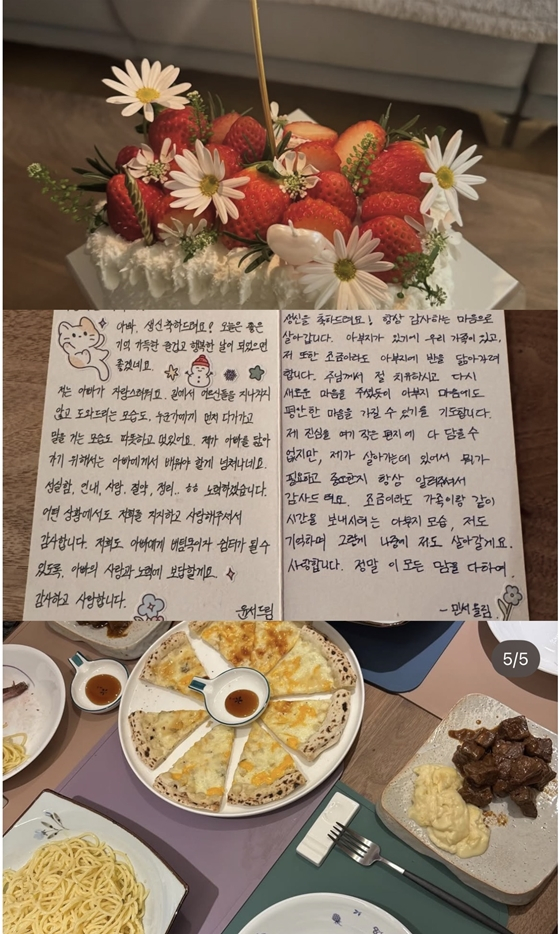 아빠, 생신축하드려요! 오늘은 좋은
기억 가득한 즐겁고 행복한 날이 되었으면
좋겠네요.
저는 아빠가 자랑스러워요. 길에서 어르신들을 지나치지
않고 도와드리는 모습도, 누군가에게 먼저 다가가고
말을 거는 모습도 따뜻하고 멋있어요. 제가 아빠를 닮아
가기 위해서는 아빠에게서 배워야 할게 넘쳐나네요.
성실함, 인내, 사랑, 절약, 정리.. ㅎㅎ 노력하겠습니다.
어떤 상황에서도 저희를 지지하고 사랑해주셔서
감사합니다. 저희도 아빠에게 버팀목이자 쉼터가 될 수
있도록, 아빠의 사랑과 노력에 보답할게요.
감사하고 사랑합니다.
윤서드림
생신을 축하드려요! 항상 감사하는 마음으로
살아갑니다. 아부지가 있기에 우리 가족이 있고,
저 또한 조금이라도 아부지에 반을 닮아가려
합니다. 주님께서 절 치유하시고 다시
새로운 마음을 주셨듯이 아부지 마음에도
평안한 마음을 가질 수 있기를 기도합니다.
제 진심을 여기 작은 편지에 다 담을 수
없지만, 제가 살아가는데 있어서 뭐가
필요하고 중요한지 항상 알려주셔서
감사드려요. 조금이라도 가족이랑 같이
시간을 보내시려는 아부지 모습, 저도
기억하며 그렇게 나중에 저도 살아갈게요.
사랑합니다. 정말 이 모든 맘을 다하여
- 민석 올림
5/5